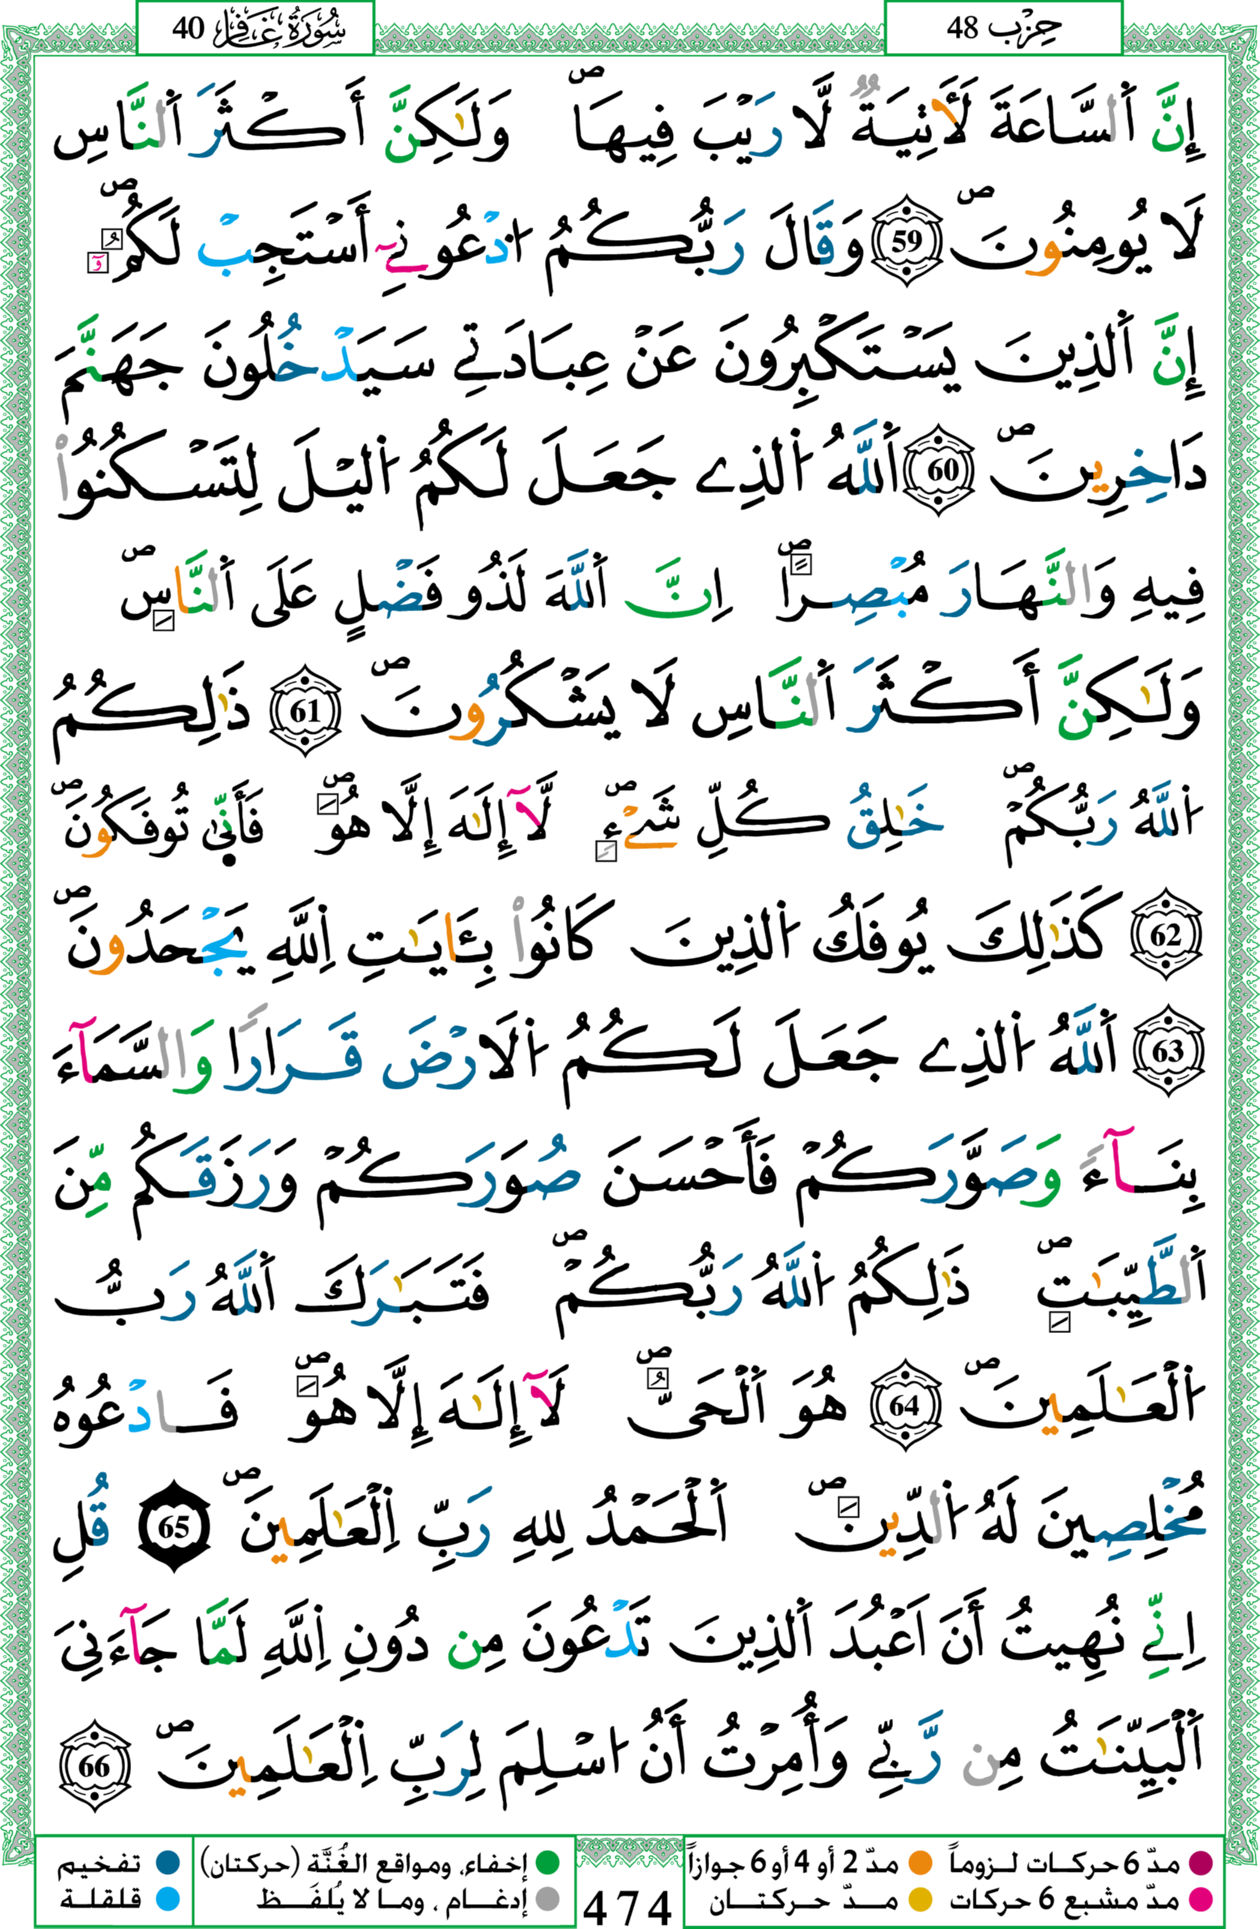 سُورَةُ غَافِر 40
حِزْب 48
إِنَّ اَ۬لسَّاعَةَ لَأٓتِيَةٞ لَّا رَيْبَ فِيهَاۖ وَلَٰكِنَّ أَكْثَرَ اَ۬لنَّاسِ
لَا يُومِنُونَۖ 59 وَقَالَ رَبُّكُمُ اُ۟دْعُونِےٓ أَسْتَجِبْ لَكُمُۥٓۖ
إِنَّ اَ۬لذِينَ يَسْتَكْبِرُونَ عَنْ عِبَادَتِے سَيَدْخُلُونَ جَهَنَّمَ
دَاخِرِينَۖ 60 اَ۬للَّهُ اُ۬لذِے جَعَلَ لَكُمُ اُ۬ليْلَ لِتَسْكُنُواْ
فِيهِ وَالنَّهَارَ مُبْصِراًۖ اِنَّ اَ۬للَّهَ لَذُو فَضْلٍ عَلَى اَ۬لنَّاسِۖ
وَلَٰكِنَّ أَكْثَرَ اَ۬لنَّاسِ لَا يَشْكُرُونَۖ 61 ذَٰلِكُمُ
اُ۬للَّهُ رَبُّكُمْۖ خَٰلِقُ كُلِّ شَےْءٖۖ لَّآ إِلَٰهَ إِلَّا هُوَۖ فَأَنّ۪ىٰ تُوفَكُونَۖ
62 كَذَٰلِكَ يُوفَكُ اُ۬لذِينَ كَانُواْ بِـَٔايَٰتِ اِ۬للَّهِ يَجْحَدُونَۖ
63 اَ۬للَّهُ اُ۬لذِے جَعَلَ لَكُمُ اُ۬لَارْضَ قَرَاراٗ وَالسَّمَآءَ
بِنَآءٗ وَصَوَّرَكُمْ فَأَحْسَنَ صُوَرَكُمْ وَرَزَقَكُم مِّنَ
اَ۬لطَّيِّبَٰتِۖ ذَٰلِكُمُ اُ۬للَّهُ رَبُّكُمْۖ فَتَبَٰرَكَ اَ۬للَّهُ رَبُّ
اُ۬لْعَٰلَمِينَۖ 64 هُوَ اَ۬لْحَيُّۖ لَآ إِلَٰهَ إِلَّا هُوَۖ فَادْعُوهُ
مُخْلِصِينَ لَهُ اُ۬لدِّينَۖ اَ۬لْحَمْدُ لِلهِ رَبِّ اِ۬لْعَٰلَمِينَۖ 65 قُلِ
اِنِّے نُهِيتُ أَنَ اَعْبُدَ اَ۬لذِينَ تَدْعُونَ مِن دُونِ اِ۬للَّهِ لَمَّا جَآءَنِيَ
اَ۬لْبَيِّنَٰتُ مِن رَّبِّے وَأُمِرْتُ أَنُ اُسْلِمَ لِرَبِّ اِ۬لْعَٰلَمِينَۖ 66
مدّ 6 حركات لزوماً
مدّ 2 أو 4 أو 6 جوازاً
إخفاء، ومواقع الغُنَّة (حركتان)
تفخيم
مدّ مشبع 6 حركات
مدّ حركتان
474
إدغام ، وما لا يُلفَظ
قلقلة